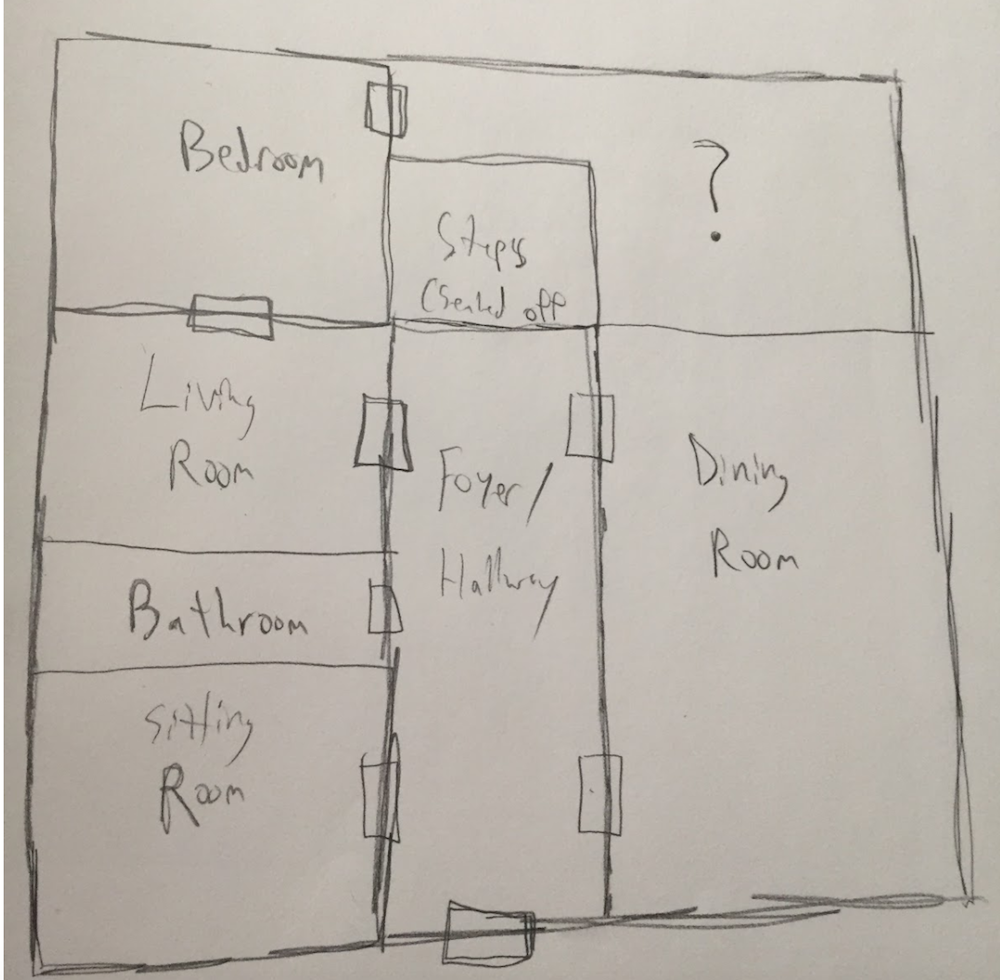 Bedroom
?
Steps
(Sealed off
Living
Room
Foyer/
Hallway
Dining
Room
Bathroom
Sitting
Room